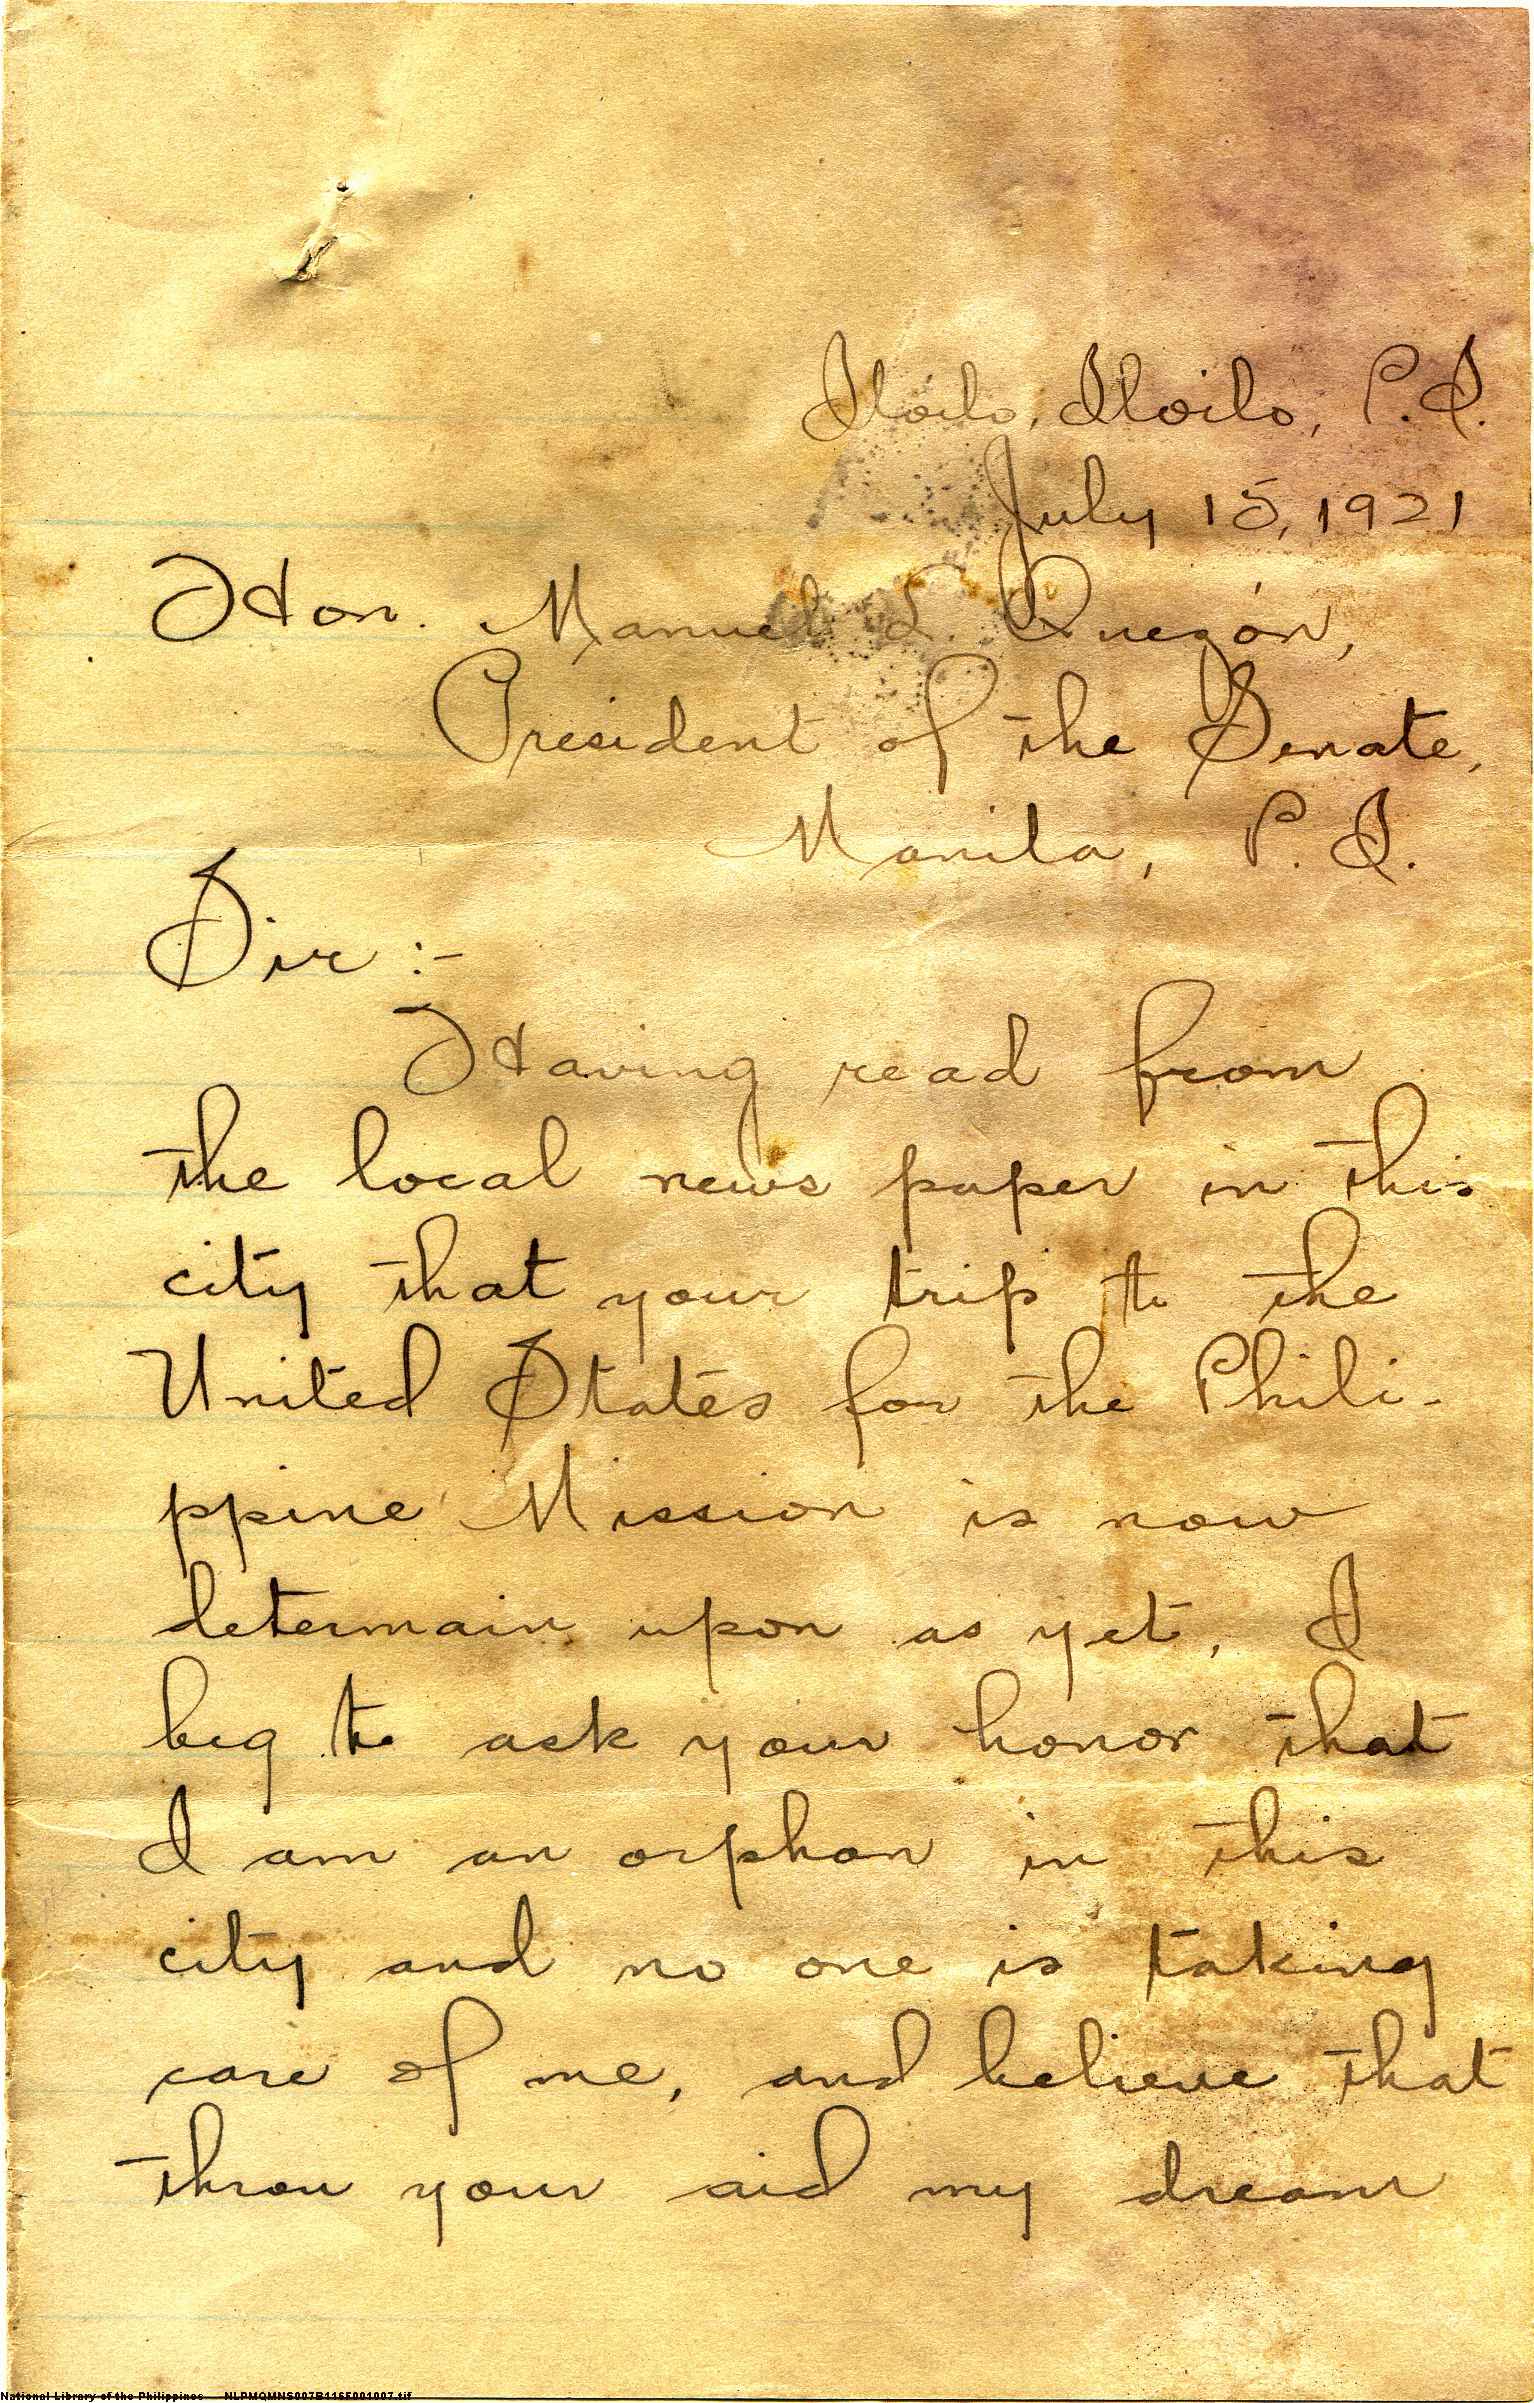 Iloilo, Iloilo, P.I.
July 15, 1921
Hon. Manuel L. Quezón,
President of the Senate,
Manila, P.I.
Sir :-
Having read from
the local news paper in this
city that your trip to the
United States for the Phili-
ppine Mission is now
determain upon as yet, I
beg to ask your honor that
I am an orphan in this
city and no one is taking
care of me, and believe that
throu your aid my dream
National Library of the Philippines NLPMQMNS007B1165001007.tif